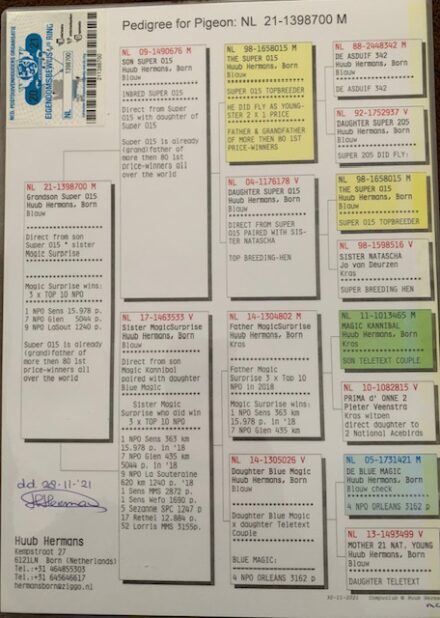 Pedigree for Pigeon: NL 21-1398700 M
EIGENDOMSBEWIJS RING
NL
1398700
NL 21-1398700 M
Grandson Super 015
Huub Hermans, Born
Blauw
Direct from son
Super 015 * sister
Magic Surprise
Magic Surprise wins:
3 x TOP 10 NPO
1 NPO Sens 15.978 p.
7 NPO Gien 5044 p.
9 NPO LaSout 1240 p.
Super 015 is already
(grand)father of
more then 80 1st
price-winners all
over the world
NL 09-1490676 M
SON SUPER 015
Huub Hermans, Born
Blauw
INBRED SUPER 015
Direct from Super
015 with daughter of
Super 015
Super 015 is already
(grand)father of
more then 80 1st
price-winners all
over the world
NL 17-1463533 V
Sister MagicSurprise
Huub Hermans, Born
Blauw
Direct from son
Magic Kannibal
paired with daughter
Blue Magic
Sister Magic
Surprise who did win
3 x TOP 10 NPO
1 NPO Sens 363 km
15.978 p. in '18
7 NPO Gien 435 km
5044 p. in '18
9 NPO La Souteraine
620 km 1240 p. '18
1 Sens MMS 2872 p.
1 Sens Wefo 1690 p.
5 Sezanne SPC 1247 p
17 Rethel 12.884 p.
52 Lorris MMS 3155p.
NL 98-1658015 M
THE SUPER 015
Huub Hermans, Born
Blauw
SUPER 015 TOPBREEDER
HE DID FLY AS YOUNG-
STER 2 X 1 PRICE
FATHER & GRANDFATHER
OF MORE THEN 80 1ST
PRICE-WINNERS
NL 04-1176178 V
DAUGHTER SUPER 015
Huub Hermans, Born
Blauw
DIRECT FROM SUPER
015 PAIRED WITH SIS-
TER NATASCHA
TOP BREEDING-HEN
NL 14-1304802 M
Father MagicSurprise
Huub Hermans, Born
Kras
Father Magic
Surprise 3 x Top 10
NPO in 2018
Magic Surprise wins:
1 NPO Sens 363 km
15.978 p. in '18
7 NPO Gien 435 km
NL 14-1305026 V
Daughter Blue Magic
Huub Hermans, Born
Blauw
Daughter Blue Magic
x daughter Teletext
Couple
BLUE MAGIC:
4 NPO ORLEANS 3162 p
NL 88-2448342 M
DE ASDUIF 342
Huub Hermans, Born
Blauw
DE ASDUIF 342
NL 92-1752937 V
DAUGHTER SUPER 205
Huub Hermans, Born
Blauw
SUPER 205 DID FLY:
NL 98-1658015 M
THE SUPER 015
Huub Hermans, Born
Blauw
SUPER 015 TOPBREEDER
NL 98-1598516 V
SISTER NATASCHA
Jo van Deurzen
Kras
SUPER BREEDING HEN
NL 11-1013465 M
MAGIC KANNIBAL
Huub Hermans, Born
Kras
SON TELETEXT COUPLE
NL 10-1082815 V
PRIMA d' ONNE 2
Pieter Veenstra
Kras witpen
direct daughter to
2 National Acebirds
NL 05-1731421 M
DE BLUE MAGIC
Huub Hermans, Born
Blauw check
4 NPO ORLEANS 3162 p
NL 13-1493499 V
MOTHER 21 NAT. YOUNG
Huub Hermans, Born
Blauw
DAUGHTER TELETEXT
dd 20-11-'21
Huub Hermans
Kempstraat 27
6121LN Born (Netherlands)
Tel.:+31 464855303
Tel.:+31 645646617
hermansborn@ziggo.nl
Compuclub © Huub Herm